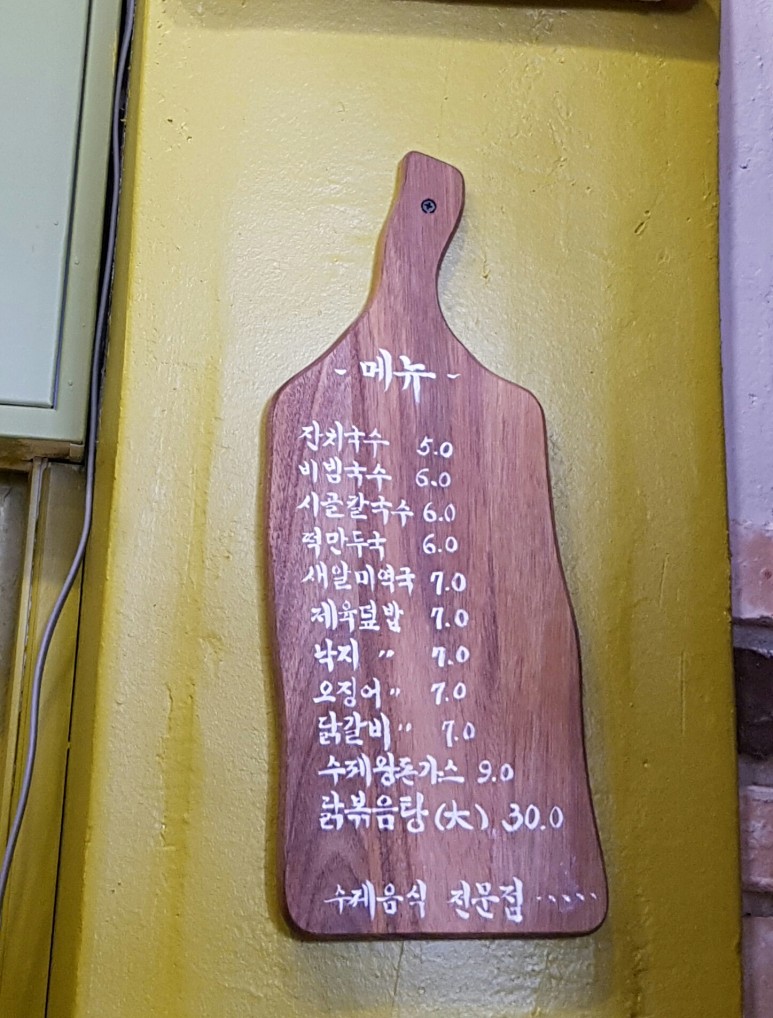 - 메뉴 -
잔치국수 5.0
비빔국수 6.0
시골칼국수 6.0
떡만두국 6.0
새알미역국 7.0
제육덮밥 7.0
낙지 〃 7.0
오징어 〃 7.0
닭갈비 〃 7.0
수제왕돈가스 9.0
닭볶음탕(大) 30.0
수제음식 전문점 ....